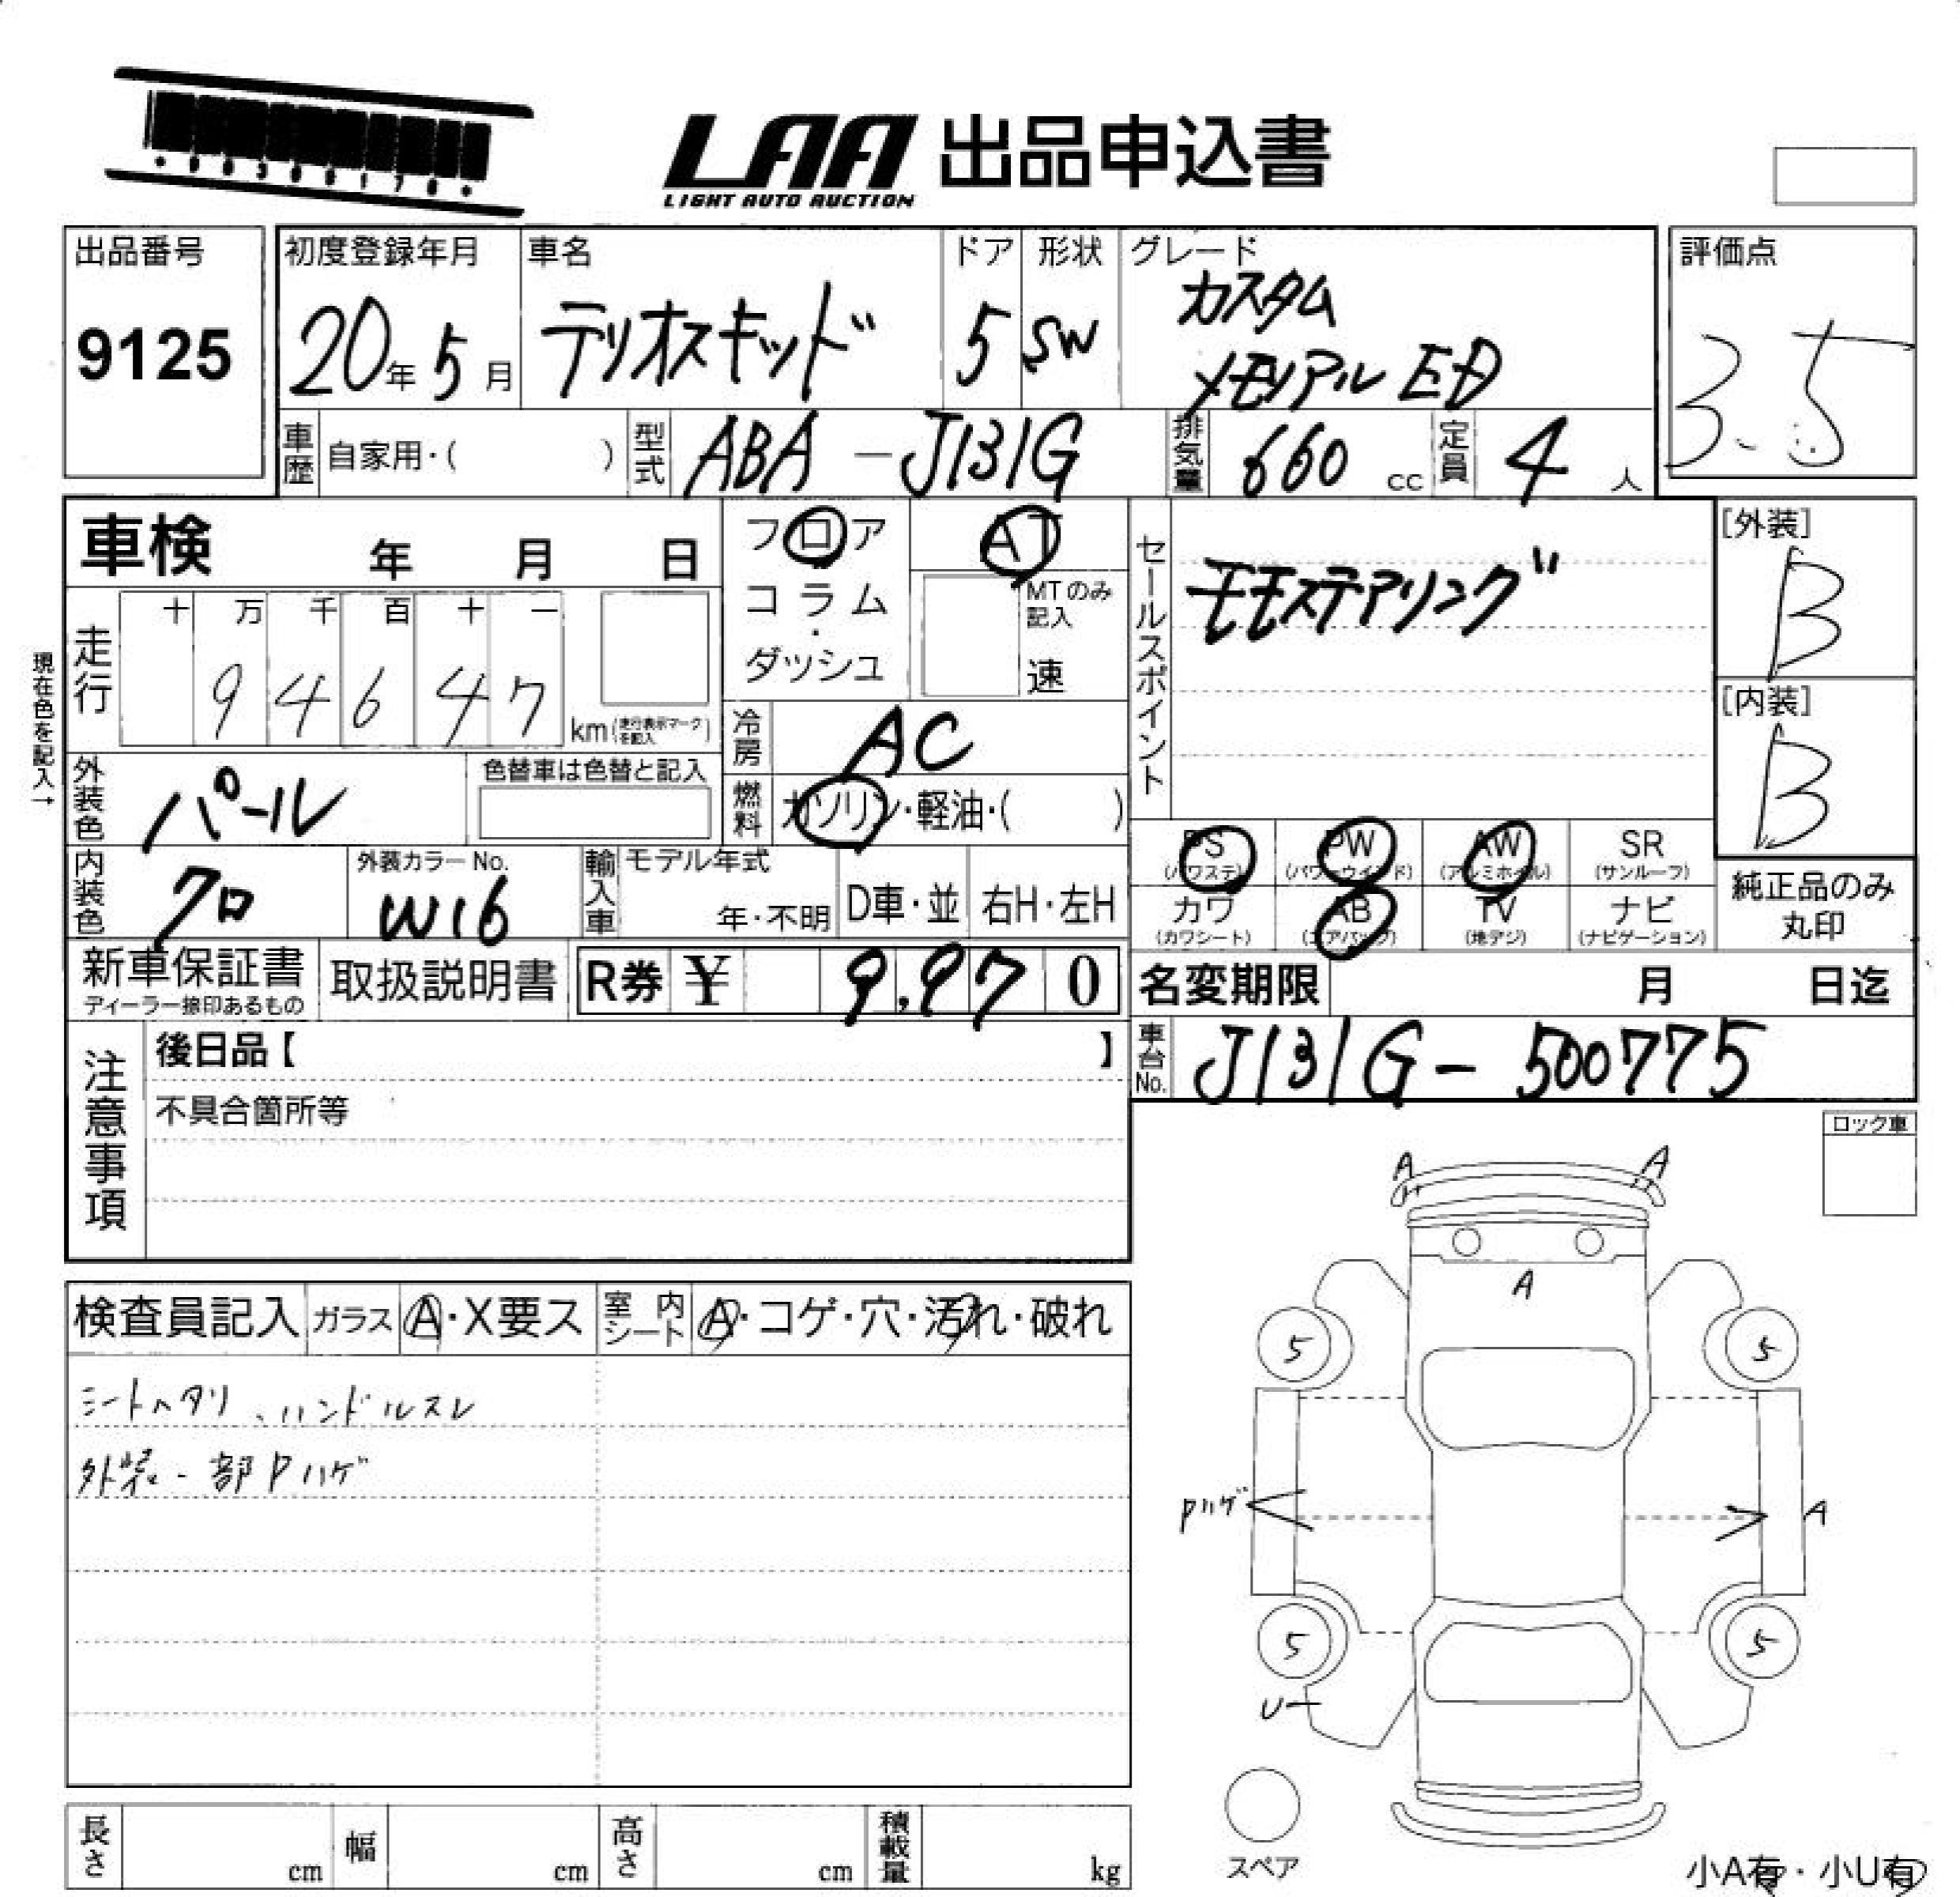 LAA 出品申込書
LIGHT AUTO AUCTION
出品番号
9125
初度登録年月
20年5月
車名
テリオスキッド
ドア
5
形状
SW
グレード
カスタム
メモリアル ED
評価点
3.5
車歴 自家用・( )
型式 ABA-J131G
排気量 660 cc
定員 4 人
車検 年 月 日
フロア
コラム
・
ダッシュ
AT
MTのみ
記入
速
セールスポイント
モモステアリング
[外装]
B
[内装]
B
現在色を記入→
走行
十 万 千 百 十 一
9 4 6 4 7
km(走行表示マークを記入)
冷房 AC
燃料 ガソリン・軽油・( )
外装色 パール
色替車は色替と記入
内装色 クロ
外装カラーNo.
W16
輸入車
モデル年式
年・不明
D車・並
右H・左H
PS PW AW SR
(パワステ) (パワーウインド) (アルミホイル) (サンルーフ)
カワ AB TV ナビ
(カワシート) (エアバッグ) (地デジ) (ナビゲーション)
純正品のみ
丸印
新車保証書
ディーラー捺印あるもの
取扱説明書
R券 ¥ 9,970
名変期限 月 日迄
車台No. J131G-500775
注意事項
後日品【 】
不具合箇所等
ロック車
検査員記入 ガラス A・X要ス 室内シート A・コゲ・穴・汚れ・破れ
シートヘタリ、ハンドルスレ
外装一部Pハゲ
A A
A
5 5
Pハゲ A
5 5
U
スペア
長さ cm 幅 cm 高さ cm 積載量 kg
小A有・小U有